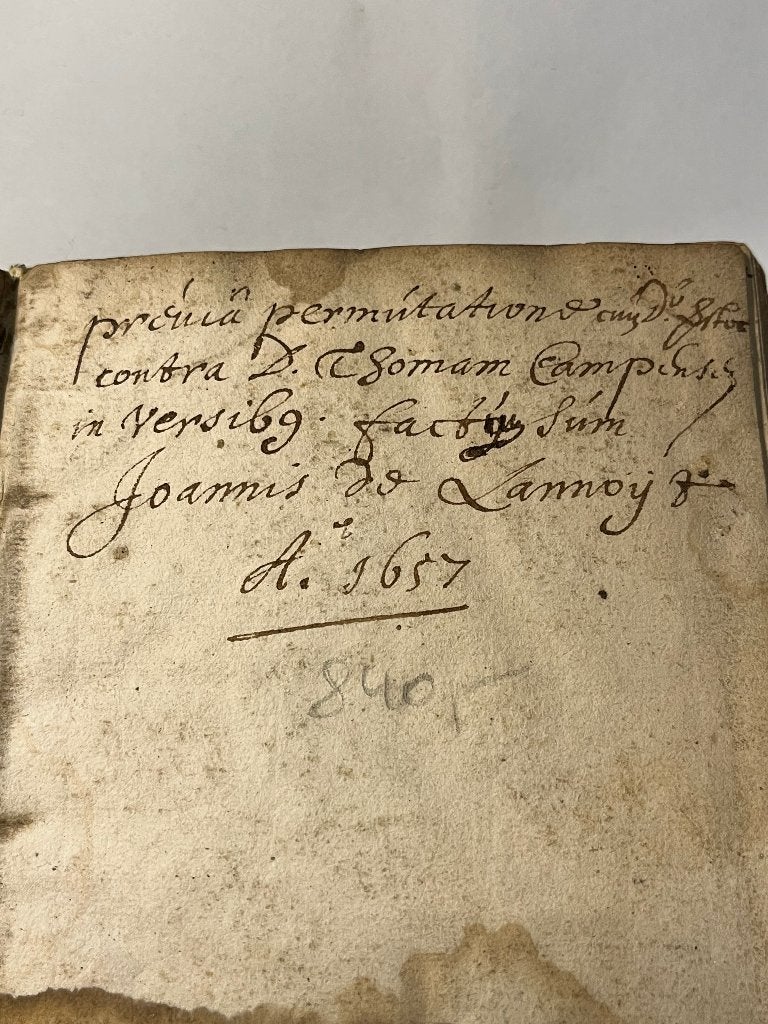 préuiâ permútatione cum D.º
contra D. Thomam Campense
in versib9. factus súm
Joannis de Lannoÿ
A.º 1657
840,-